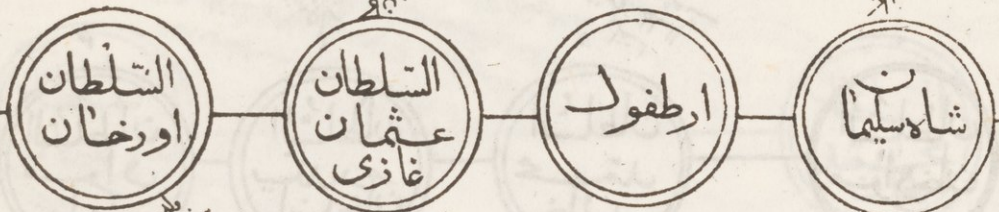 شاه سليمان
ارطفول
السّلطان
عثمان
غازى
السّلطان
اورخان